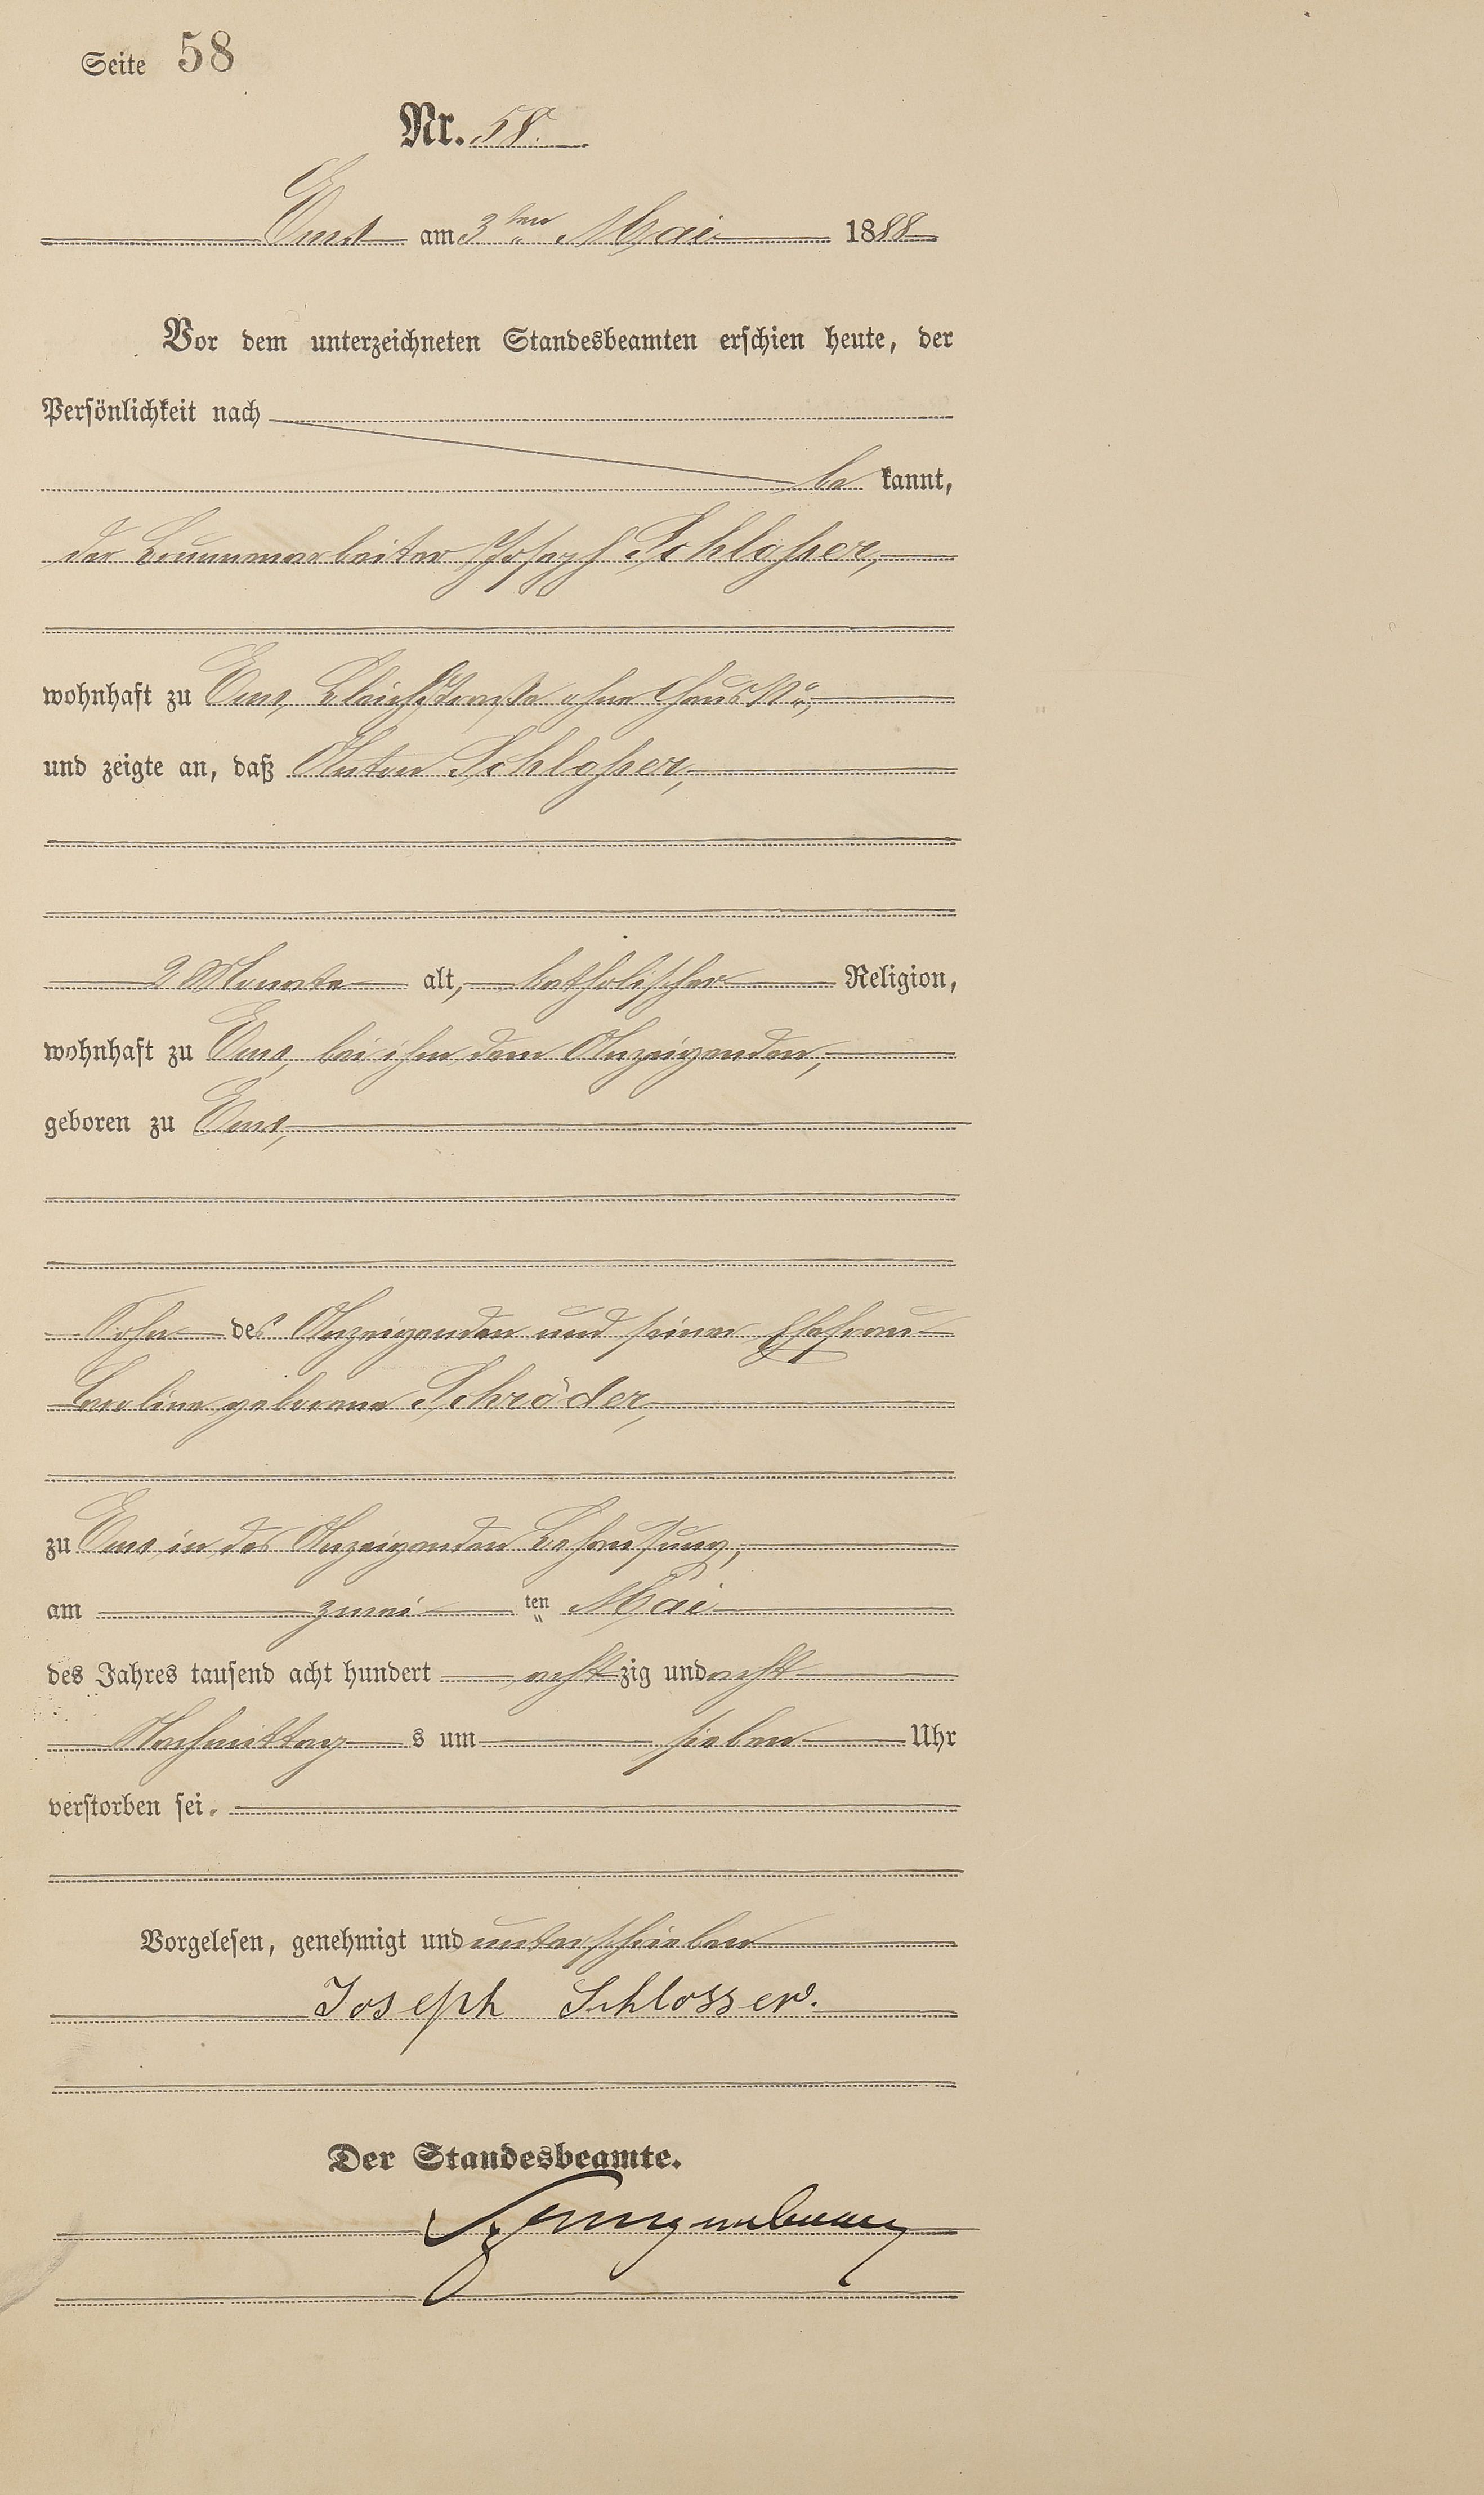 Seite 58
Nr. 58.
Ems am 3ten Mai 1888
Vor dem unterzeichneten Standesbeamten erschien heute, der
Persönlichkeit nach
be kannt,
der Brunnenarbeiter Joseph Schlosser,
wohnhaft zu Ems, Bleichstraße ohne Haus No,
und zeigte an, daß Anton Schlosser,
2 Monate alt, katholischer Religion,
wohnhaft zu Ems, bei ihm dem Anzeigenden,
geboren zu Ems,
Sohn des Anzeigenden und seiner Ehefrau
Caroline geborene Schröder,
zu Ems in des Anzeigenden Behausung,
am zwei ten Mai
des Jahres tausend acht hundert acht zig und acht
Nachmittag s um sieben Uhr
verstorben sei.
Vorgelesen, genehmigt und unterschrieben
Joseph Schlosser.
Der Standesbeamte.